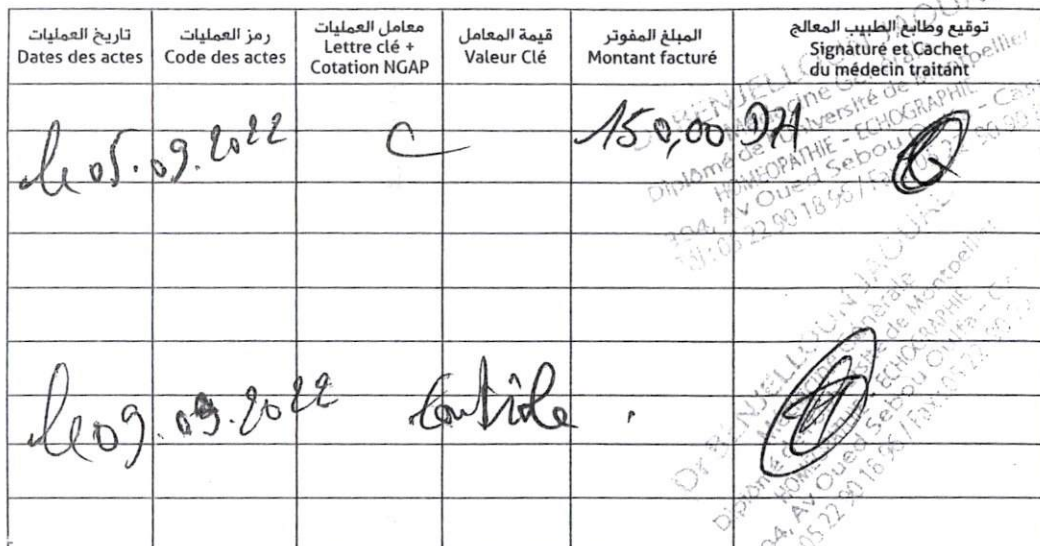 تاريخ العمليات
Dates des actes
رمز العمليات
Code des actes
معامل العمليات
Lettre clé +
Cotation NGAP
قيمة المعامل
Valeur Clé
المبلغ المفوتر
Montant facturé
توقيع وطابع الطبيب المعالج
Signature et Cachet
du médecin traitant
le 05.09.2022 C 150,00 DH
Diplômé de Université de Montpellier
HOMEOPATHIE - ECHOGRAPHIE
Av Oued Sebou
05 22 90 18 96 / Fax
le 09.09.2022 Contrôle
Dr BENJELLOUN
Diplômé de Montpellier
ECHOGRAPHIE
Av Oued Sebou Oulfa
05 22 90 18 96 / Fax